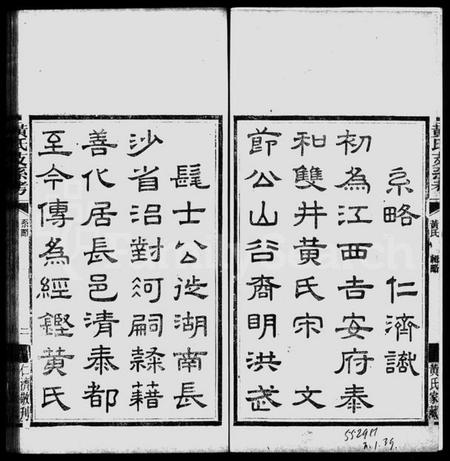 系略 仁濟識
初為江西吉安府泰
和雙井黃氏宋 文
節公山谷裔明洪武
髦士公徙湖南長
沙省沿對河嗣隸藉
善化居長邑清泰都
至今傳為經鏗黃氏
黃氏支系考
系略
二
仁濟敬刊
黃氏支系考
黃氏
黃氏家藏
552917
FamilySearch